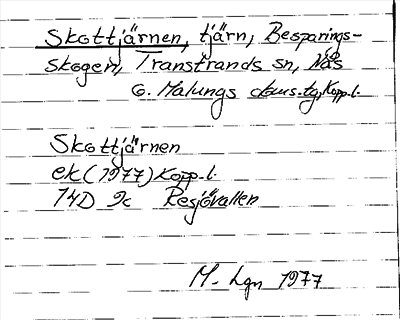 Skottjärnen, tjärn, Besparings-
skogen, Transtrands sn, Nås
o. Malungs doms.tg, Kopp.l.
Skottjärnen
ek (1977) Kopp.l.
14D 9c Resjövallen
M. Lgn 1977